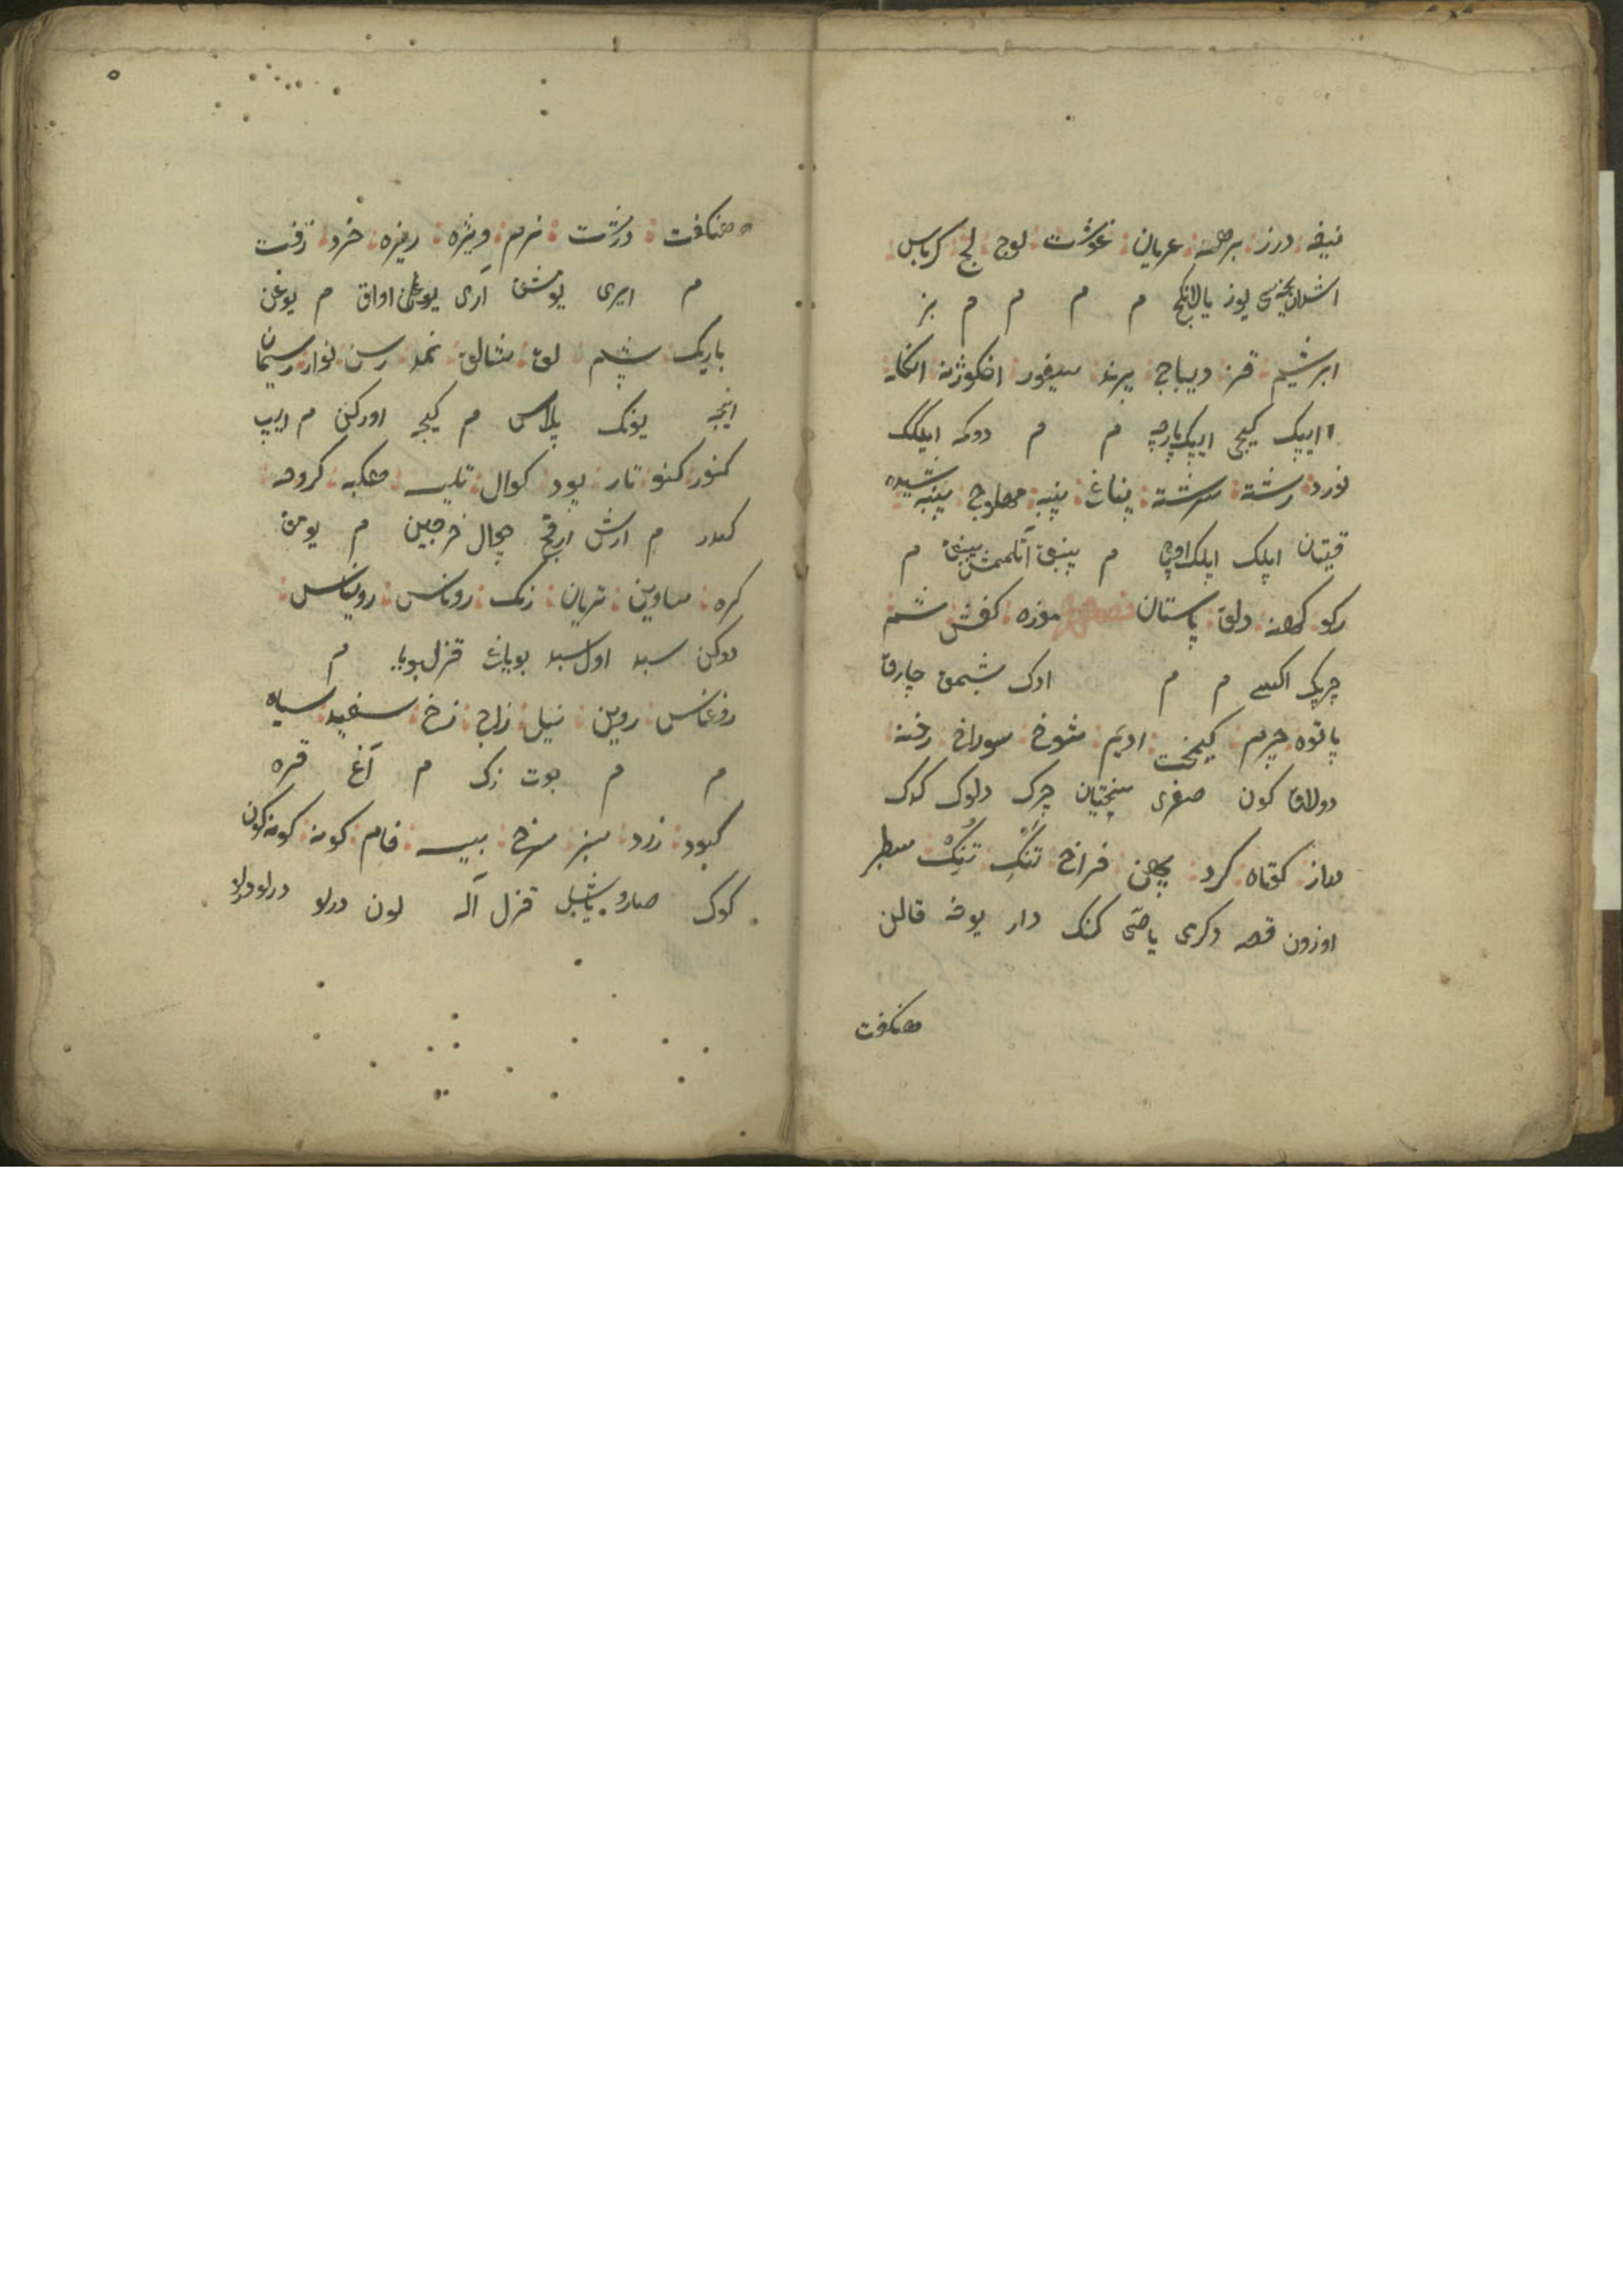 نیفه درز برهنه عریان غوشت لوج لج کرباس
یوز یالانکج م م م م م بز
ابریشیم قز دیباج پرند سیفور انکوژنه انکله
ایپک کیجی ایپک پارچه م م دوکمه ایلکک
نورد رشته سرشته پناغ پنبه محلوج پنبه شیده
قیتان ایپلک ایپلک اوجی م پنبق آتلمش پنبق م
رکو کهنه دلق پاستان موزه کفش شم
چپرک اکسی م م ادک بشمق چارق
پاتوه چرم کیمخت ادیم شوخ سوراخ رخنه
دولاق کون صغری سختیان چرک دلوک کدک
دراز کوتاه کرد پهن فراخ تنک تنک سطبر
اوزون قصه دکرمی یاصی کنک دار یوفه قالن
هنکفت
هنکفت درشت نرم ویژه ریزه خرد زفت
م ایری یومشق آری اواق م یوغن
باریک پشم لق شالق نمد رسن نوار ریسمان
اینجه یونک پلاس م کیجه اورکن م ایپ
کنور کنو تار پود کوال تلیس عکبه کروهه
کندر م ارش ارقج چچال خرجین م یومق
کره ساوین تریان رنک روناس رویناس
دوکن سبد اول سبد بویاغ قزل بویا م
روغناس روین نیل زاج زخ سفید سیاه
م م جوت زک م آغ قره
کبود زرد سبز سرخ پیس فام کونه کونه کون
کوک صارو یاشل قزل آله لون درلو درلو درلو